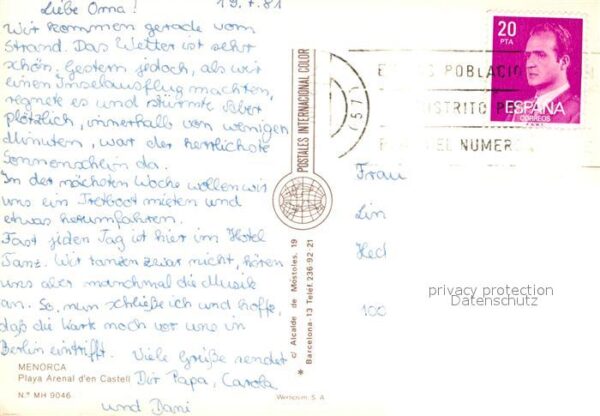 Liebe Oma! 19.7.81
Wir kommen gerade vom
Strand. Das Wetter ist sehr
schön. Gestern jedoch, als wir
einen Inselausflug machten,
regnete es und stürmte. Aber
plötzlich, innerhalb von wenigen
Minuten, war der herrlichste
Sonnenschein da.
In der nächsten Woche wollen wir
uns ein Tretboot mieten und
etwas herumfahren.
Fast jeden Tag ist hier im Hotel
Tanz. Wir tanzen zwar nicht, hören
uns aber manchmal die Musik
an. So, nun schließe ich und hoffe,
daß die Karte noch vor uns in
Berlin eintrifft. Viele Grüße sendet
Dir Papa, Carola
und Dani
MENORCA
Playa Arenal d'en Castell
N.º MH 9046
POSTALES INTERNACIONAL COLOR
c/ Alcalde de Móstoles, 19
Barcelona-13 Teléf. 236-92-21
POBLACIO
DISTRITO P
EL NUMERO
(57)
20
PTA
ESPAÑA
CORREOS
Frau
Lin
Hed
100
privacy protection
Datenschutz